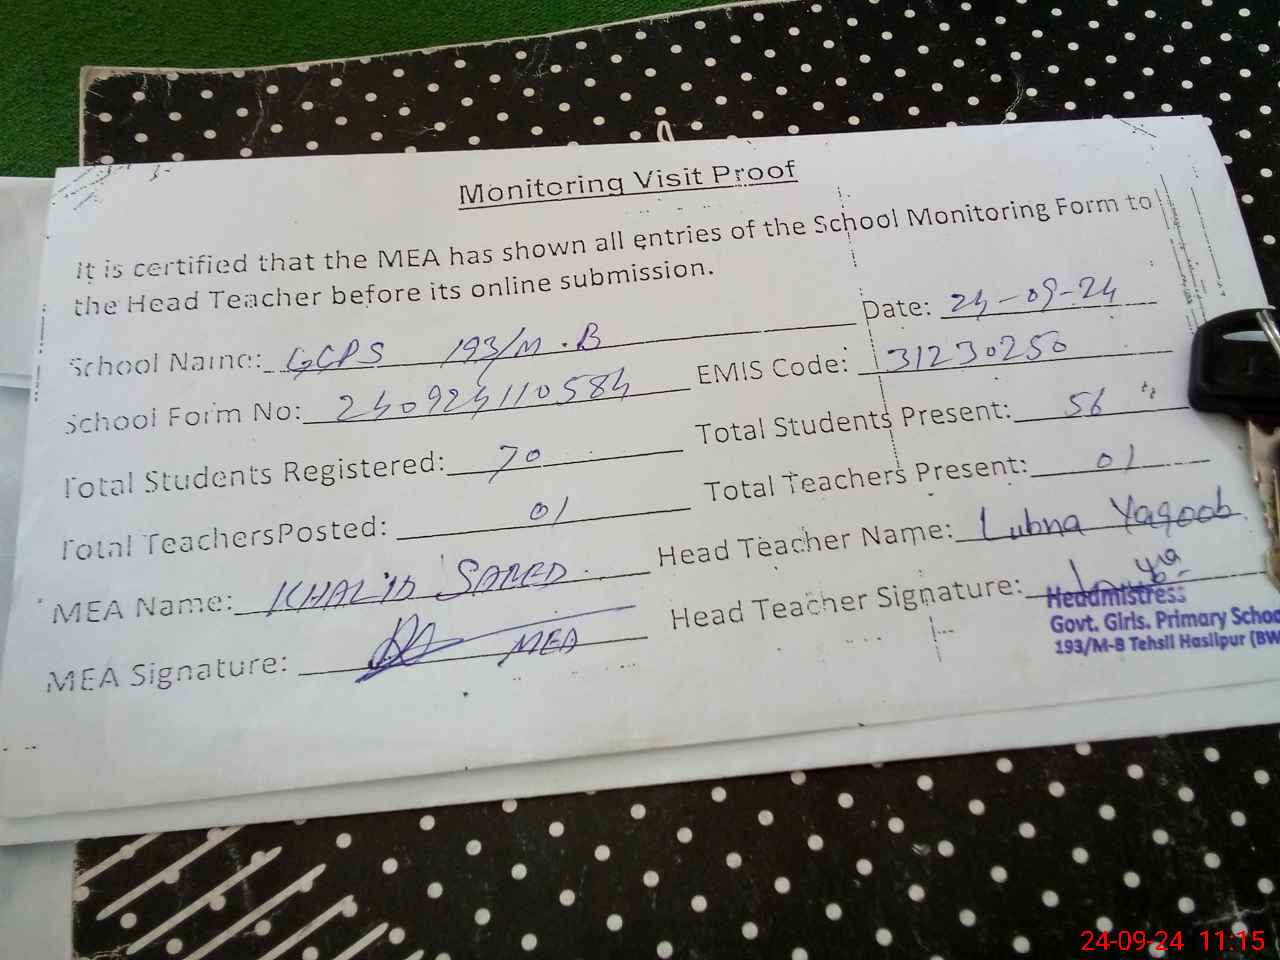 Monitoring Visit Proof
It is certified that the MEA has shown all entries of the School Monitoring Form to
the Head Teacher before its online submission.
Date: 24-09-24
School Name: GGPS 193/M.B
EMIS Code: 31230250
School Form No: 240924110584
Total Students Present: 56
Total Students Registered: 70
Total Teachers Present: 01
Total TeachersPosted: 01
Head Teacher Name: Lubna Yaqoob
MEA Name: KHALID SAEED
Head Teacher Signature:
MEA Signature: MEA
Headmistress
Govt. Girls. Primary Schoo
193/M-B Tehsil Hasilpur (BW
24-09-24 11:15